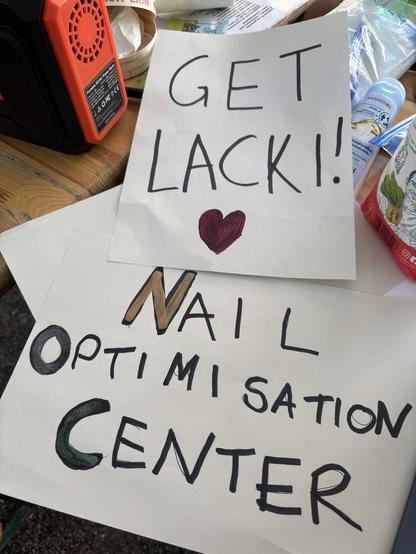 GET
LACKI!
NAIL
OPTIMISATION
CENTER